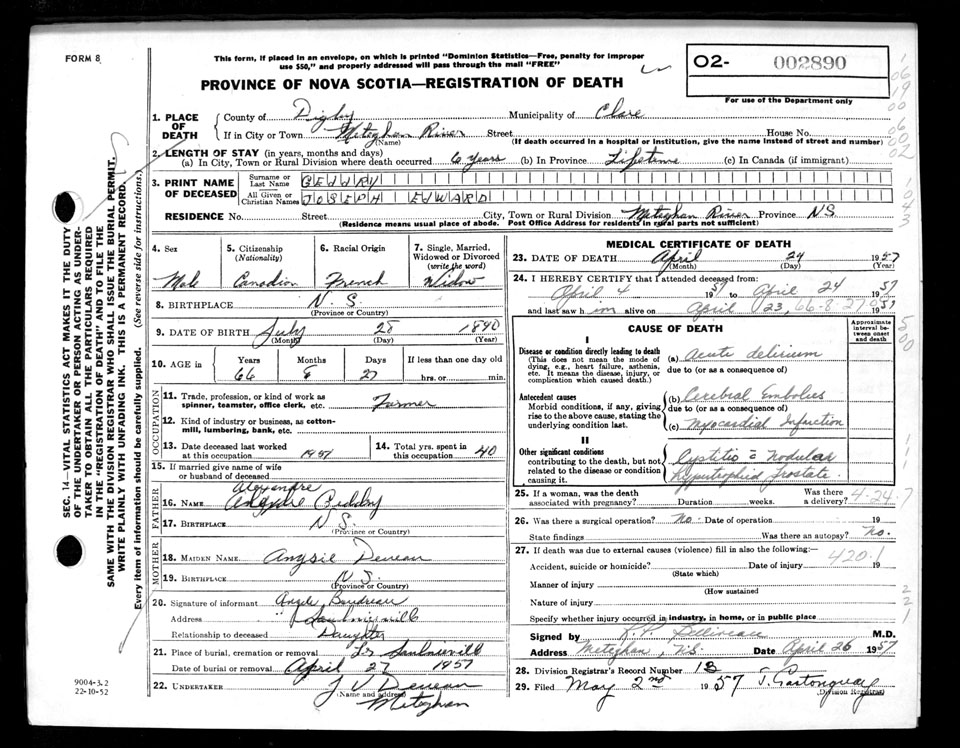 FORM 8
This form, if placed in an envelope, on which is printed "Dominion Statistics—Free, penalty for improper
use $50," and properly addressed will pass through the mail "FREE"
PROVINCE OF NOVA SCOTIA—REGISTRATION OF DEATH
O2- 002890
For use of the Department only
SEC. 14—VITAL STATISTICS ACT MAKES IT THE DUTY
OF THE UNDERTAKER OR PERSON ACTING AS UNDER-
TAKER TO OBTAIN ALL THE PARTICULARS REQUIRED
IN THE "REGISTRATION OF DEATH" AND TO FILE THE
SAME WITH THE DIVISION REGISTRAR WHO SHALL ISSUE THE BURIAL PERMIT.
WRITE PLAINLY WITH UNFADING INK. THIS IS A PERMANENT RECORD.
Every item of information should be carefully supplied. (See reverse side for instructions)
1. PLACE OF DEATH
County of Digby Municipality of Clare
If in City or Town Meteghan River Street House No.
(Name) (If death occurred in a hospital or institution, give the name instead of street and number)
2. LENGTH OF STAY (in years, months and days)
(a) In City, Town or Rural Division where death occurred 6 years (b) In Province Lifetime (c) In Canada (if immigrant)
3. PRINT NAME OF DECEASED
Surname or Last Name GEDDRY
All Given or Christian Names JOSEPH EDWARD
RESIDENCE No. Street City, Town or Rural Division Meteghan River Province NS
(Residence means usual place of abode. Post Office Address for residents in rural parts not sufficient)
4. Sex
Male
5. Citizenship (Nationality)
Canadian
6. Racial Origin
French
7. Single, Married, Widowed or Divorced (write the word)
Widow
8. BIRTHPLACE N.S.
(Province or Country)
9. DATE OF BIRTH July 28 1890
(Month) (Day) (Year)
10. AGE in Years Months Days If less than one day old
66 8 27 hrs. or min.
OCCUPATION
11. Trade, profession, or kind of work as
spinner, teamster, office clerk, etc. Farmer
12. Kind of industry or business, as cotton-
mill, lumbering, bank, etc.
13. Date deceased last worked
at this occupation 1951
14. Total yrs. spent in
this occupation 40
15. If married give name of wife
or husband of deceased
FATHER
Alexandre
16. NAME
17. BIRTHPLACE N.S.
(Province or Country)
MOTHER
18. MAIDEN NAME Deveau
19. BIRTHPLACE N.S.
(Province or Country)
20. Signature of informant Boudreau
Address
Relationship to deceased Daughter
21. Place of burial, cremation or removal Saulnierville
Date of burial or removal April 27 1957
22. UNDERTAKER J V Deveau
(Name and address) Meteghan
9004-3.2
22-10-52
MEDICAL CERTIFICATE OF DEATH
23. DATE OF DEATH April 24 1957
(Month) (Day) (Year)
24. I HEREBY CERTIFY that I attended deceased from:
April 4 1957 to April 24 1957
and last saw him alive on April 23, 66-8-27-0 1957
CAUSE OF DEATH
Approximate interval between onset and death
I
Disease or condition directly leading to death
(This does not mean the mode of
dying, e.g., heart failure, asthenia,
etc. It means the disease, injury, or
complication which caused death.)
(a) Acute delirium
due to (or as a consequence of)
Antecedent causes
Morbid conditions, if any, giving
rise to the above cause, stating the
underlying condition last.
(b) Cerebral Embolus
due to (or as a consequence of)
(c) Myocardial Infarction
II
Other significant conditions
contributing to the death, but not
related to the disease or condition
causing it.
Cystitis c̄ nodular
hypertrophied prostate
25. If a woman, was the death Was there 4-24-7
associated with pregnancy? Duration weeks. a delivery?
26. Was there a surgical operation? No - Date of operation 19
State findings Was there an autopsy? No.
27. If death was due to external causes (violence) fill in also the following:—
420.1
Accident, suicide or homicide? Date of injury 19
(State which)
Manner of injury
(How sustained
Nature of injury
Specify whether injury occurred in industry, in home, or in public place
Signed by Belliveau M.D.
Address Meteghan, N.S. Date April 26 1957
28. Division Registrar's Record Number 18
29. Filed May 2nd 1957 Gastonguay
(Division Registrar)